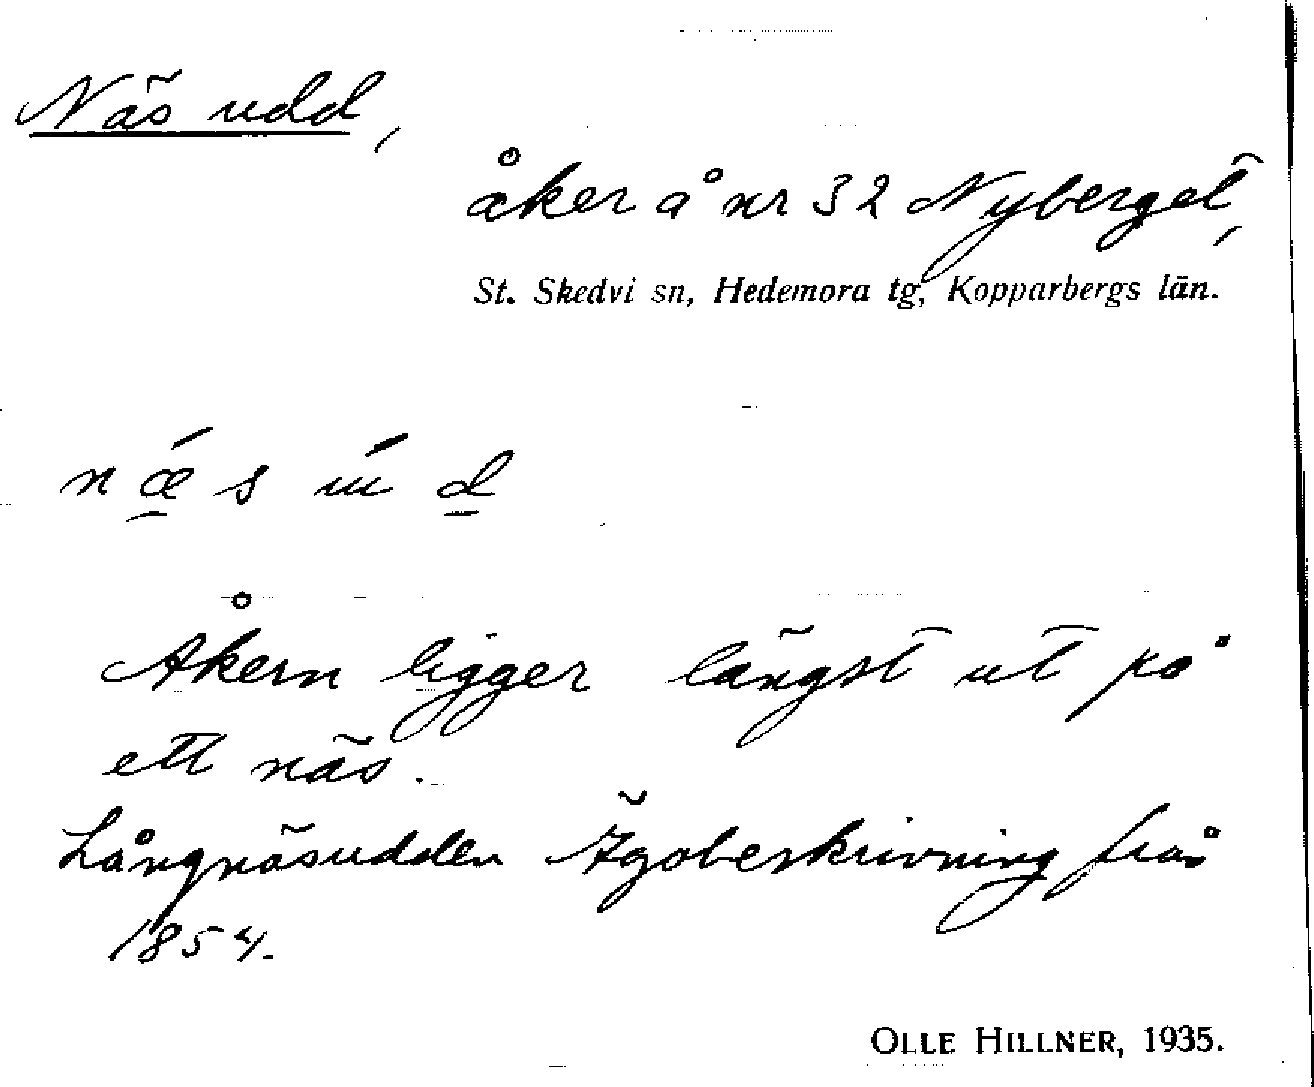 Näs udd,
åker å nr 32 Nyberget,
St. Skedvi sn, Hedemora tg, Kopparbergs län.
nǽ̱s úḏ
Åkern ligger längst ut på
ett näs.
Långnäsudden Ägobeskrivning från
1854.
OLLE HILLNER, 1935.